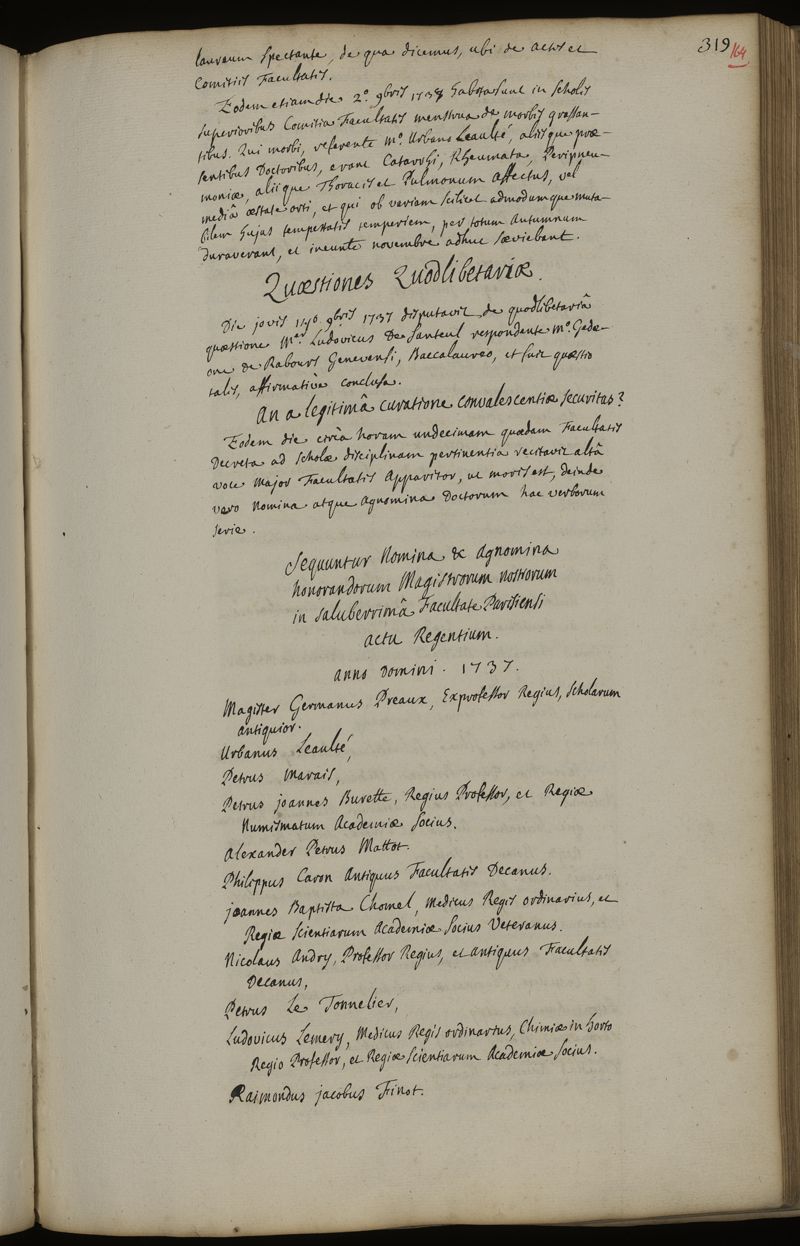 319
164
lauream spectante, de qua dicemus, ubi de actis et
Comitiis Facultatis.
Eodem etiam die 2.° 9bris 1737 habita sunt in scholis
superioribus Comitia Facultatis menstrua de morbis grassan-
tibus. Qui morbi, referente M.° Urbano Leaulté, aliisque præ-
sentibus Doctoribus, erant Catarrhi, Rheumata, Peripneu-
moniæ, aliique Thoracis et Pulmonum affectus, vel
mediâ æstate orti, et qui ob variam scilicet admodumque muta-
bilem hujus tempestatis temperiem, per totum Autumnum
duraverant, et ineunte novembre adhuc sæviebant.
Quæstiones Quodlibetariæ.
Die jovis 9bris 1737 disputavit de quodlibetariâ
quæstione M.er Ludovicus De Santeul respondente M.° Gede-
one de Rabours Genevensi, Baccalaureo, et fuit quæstio
talis, affirmativè conclusa.
An a legitimâ curatione convalescentiæ securitas?
Eodem die circa horam undecimam quædam Facultatis
Decreta ad scholæ disciplinam pertinentia recitavit altâ
voce Major Facultatis Apparitor, ut moris est, deinde
vero Nomina atque Agnomina Doctorum hac verborum
serie.
Sequuntur Nomina & Agnomina
honorandorum Magistrorum nostrorum
in saluberrimâ Facultate Parisiensi
actu Regentium.
anno Domini. 1737.
Magister Germanus Preaux, Exprofessor Regius, scholarum
antiquior.
Urbanus Leaulté,
Petrus Marais,
Petrus joannes Burette, Regius Professor, et Regiæ
Numismatum Academiæ Socius.
Alexander Petrus Mattot.
Philippus Caron Antiquus Facultatis Decanus.
joannes Baptista Chomel, Medicus Regis ordinarius, et
Regiæ Scientiarum Academiæ Socius Veteranus.
Nicolaus Andry, Professor Regius, et antiquus Facultatis
Decanus,
Petrus Le Tonnelier,
Ludovicus Lemery, Medicus Regis ordinarius, Chimiæ in horto
Regio Professor, et Regiæ Scientiarum Academiæ Socius.
Raimondus jacobus Finot.